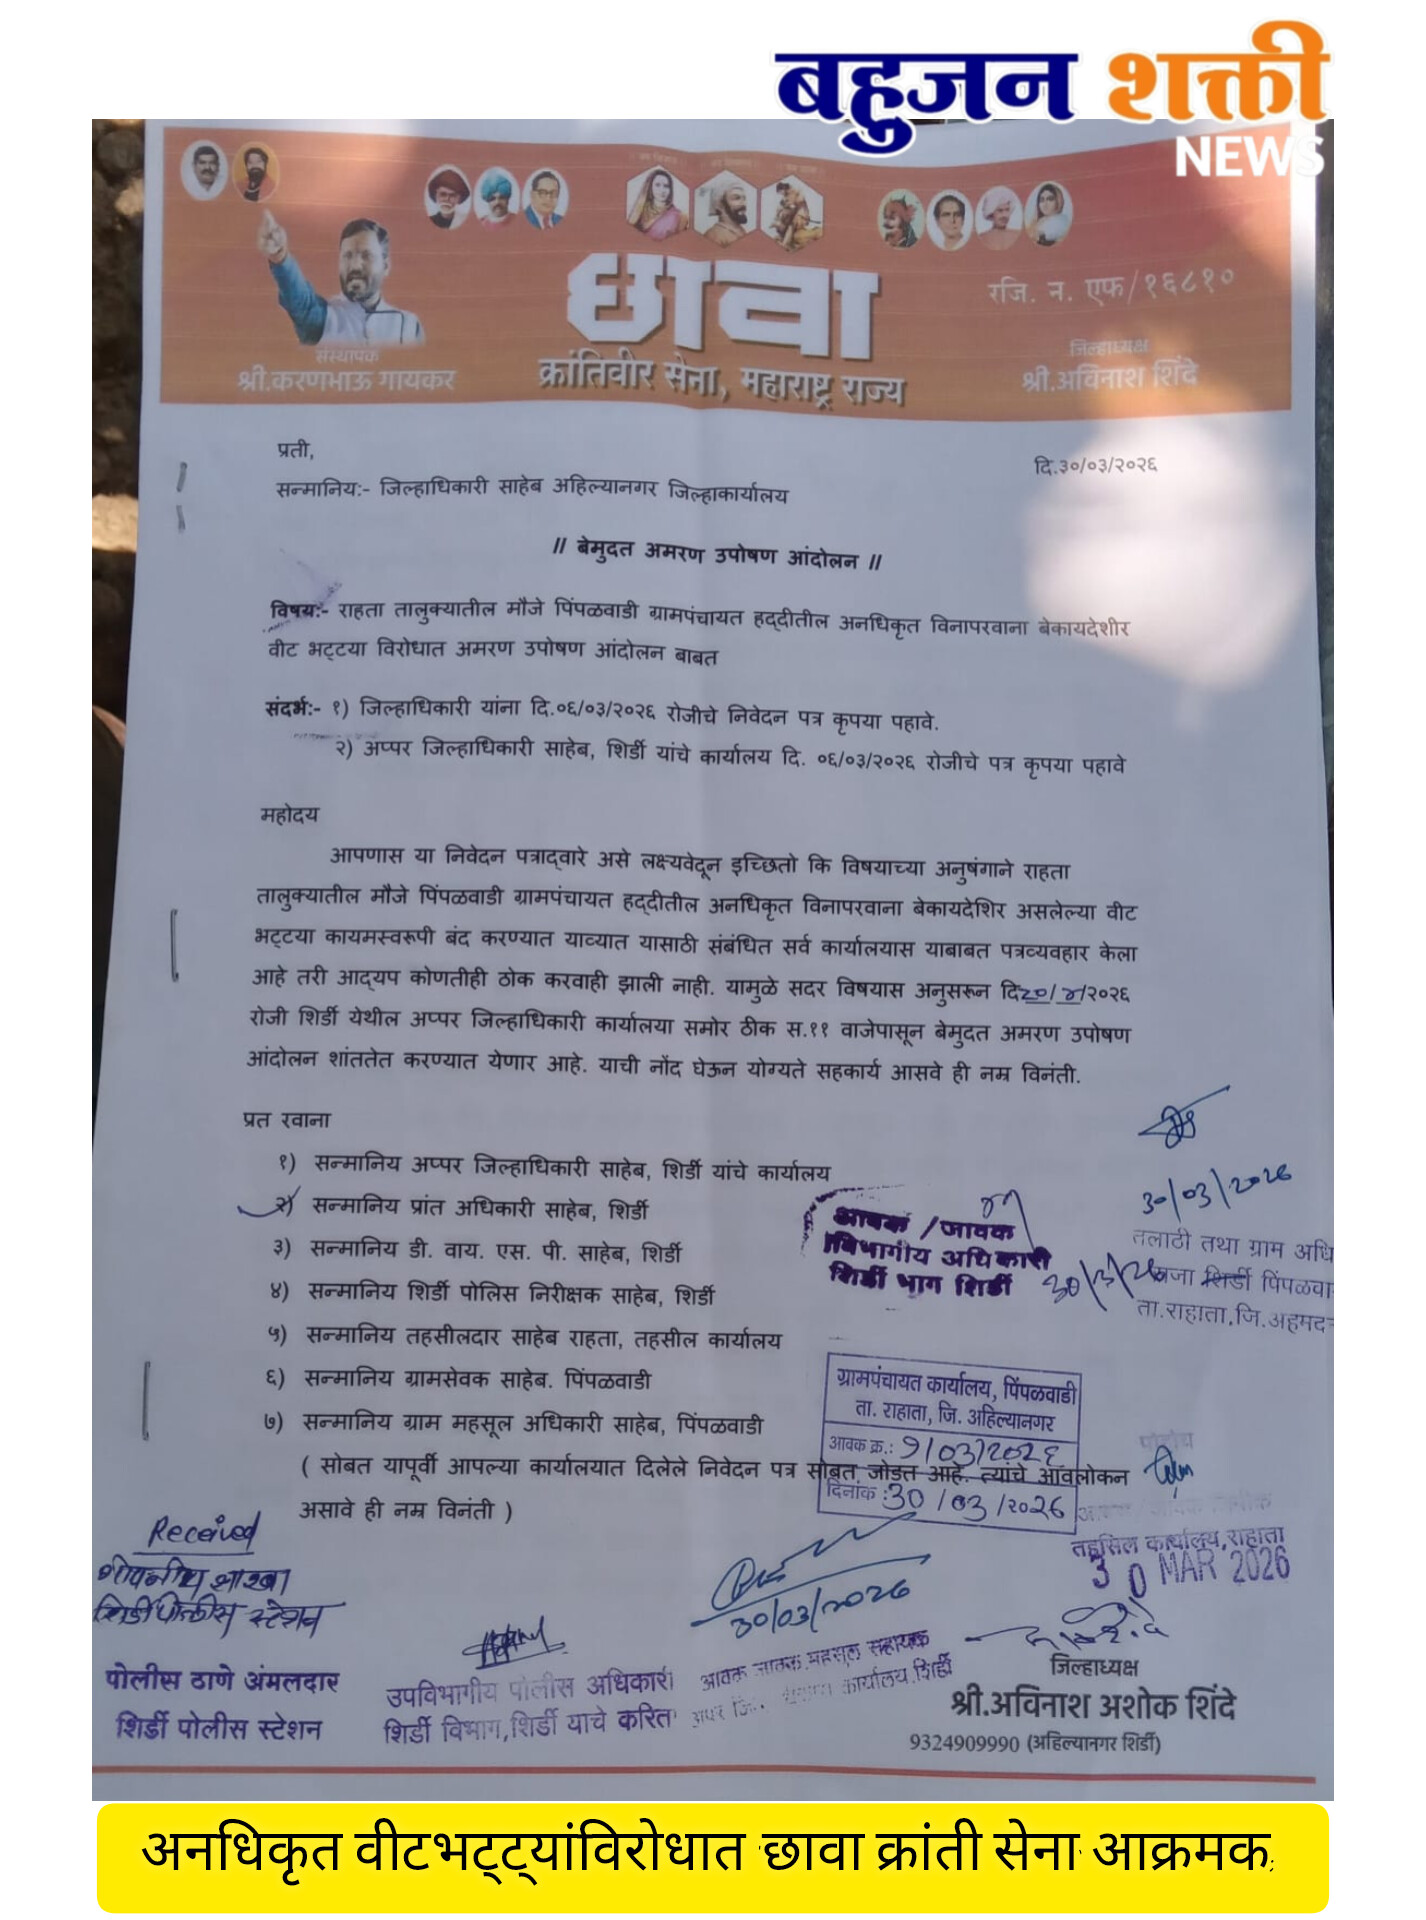 बहुजन शक्ती
NEWS
छावा
क्रांतिवीर सेना, महाराष्ट्र राज्य
रजि. न. एफ/१६८१०
संस्थापक
श्री.करणभाऊ गायकर
जिल्हाध्यक्ष
श्री.अविनाश शिंदे
प्रती,
दि.३०/०३/२०२६
सन्मानिय:- जिल्हाधिकारी साहेब अहिल्यानगर जिल्हाकार्यालय
// बेमुदत अमरण उपोषण आंदोलन //
विषय:- राहता तालुक्यातील मौजे पिंपळवाडी ग्रामपंचायत हद्दीतील अनधिकृत विनापरवाना बेकायदेशीर
वीट भट्टया विरोधात अमरण उपोषण आंदोलन बाबत
संदर्भ:- १) जिल्हाधिकारी यांना दि.०६/०३/२०२६ रोजीचे निवेदन पत्र कृपया पहावे.
२) अप्पर जिल्हाधिकारी साहेब, शिर्डी यांचे कार्यालय दि. ०६/०३/२०२६ रोजीचे पत्र कृपया पहावे
महोदय
आपणास या निवेदन पत्राद्वारे असे लक्ष्यवेदून इच्छितो कि विषयाच्या अनुषंगाने राहता
तालुक्यातील मौजे पिंपळवाडी ग्रामपंचायत हद्दीतील अनधिकृत विनापरवाना बेकायदेशिर असलेल्या वीट
भट्टया कायमस्वरूपी बंद करण्यात याव्यात यासाठी संबंधित सर्व कार्यालयास याबाबत पत्रव्यवहार केला
आहे तरी आद्यप कोणतीही ठोक करवाही झाली नाही. यामुळे सदर विषयास अनुसरून दि२०/४/२०२६
रोजी शिर्डी येथील अप्पर जिल्हाधिकारी कार्यालया समोर ठीक स.११ वाजेपासून बेमुदत अमरण उपोषण
आंदोलन शांततेत करण्यात येणार आहे. याची नोंद घेऊन योग्यते सहकार्य आसवे ही नम्र विनंती.
प्रत रवाना
१) सन्मानिय अप्पर जिल्हाधिकारी साहेब, शिर्डी यांचे कार्यालय
२) सन्मानिय प्रांत अधिकारी साहेब, शिर्डी
३) सन्मानिय डी. वाय. एस. पी. साहेब, शिर्डी
४) सन्मानिय शिर्डी पोलिस निरीक्षक साहेब, शिर्डी
५) सन्मानिय तहसीलदार साहेब राहता, तहसील कार्यालय
६) सन्मानिय ग्रामसेवक साहेब. पिंपळवाडी
७) सन्मानिय ग्राम महसूल अधिकारी साहेब, पिंपळवाडी
( सोबत यापूर्वी आपल्या कार्यालयात दिलेले निवेदन पत्र सोबत जोडत आहे. त्यांचे आवलोकन
असावे ही नम्र विनंती )
30/03/2026
तलाठी तथा ग्राम अधि
सजा शिर्डी पिंपळवा
ता.राहाता,जि.अहमद
आवक /जावक
विभागीय अधिकारी
शिर्डी भाग शिर्डी
30/3/26
ग्रामपंचायत कार्यालय, पिंपळवाडी
ता. राहाता, जि. अहिल्यानगर
आवक क्र.: 9/03/2026
दिनांक : 30/03/२०२6
तहसिल कार्यालय,राहाता
30 MAR 2026
Received
गोपनीय शाखा
शिर्डी पोलीस स्टेशन
पोलीस ठाणे अंमलदार
शिर्डी पोलीस स्टेशन
उपविभागीय पोलीस अधिकारी
शिर्डी विभाग,शिर्डी याचे करिता
30/03/2026
आवक जावक महसूल सहायक
कार्यालय.शिर्डी
जिल्हाध्यक्ष
श्री.अविनाश अशोक शिंदे
9324909990 (अहिल्यानगर शिर्डी)
अनधिकृत वीटभट्ट्यांविरोधात छावा क्रांती सेना आक्रमक